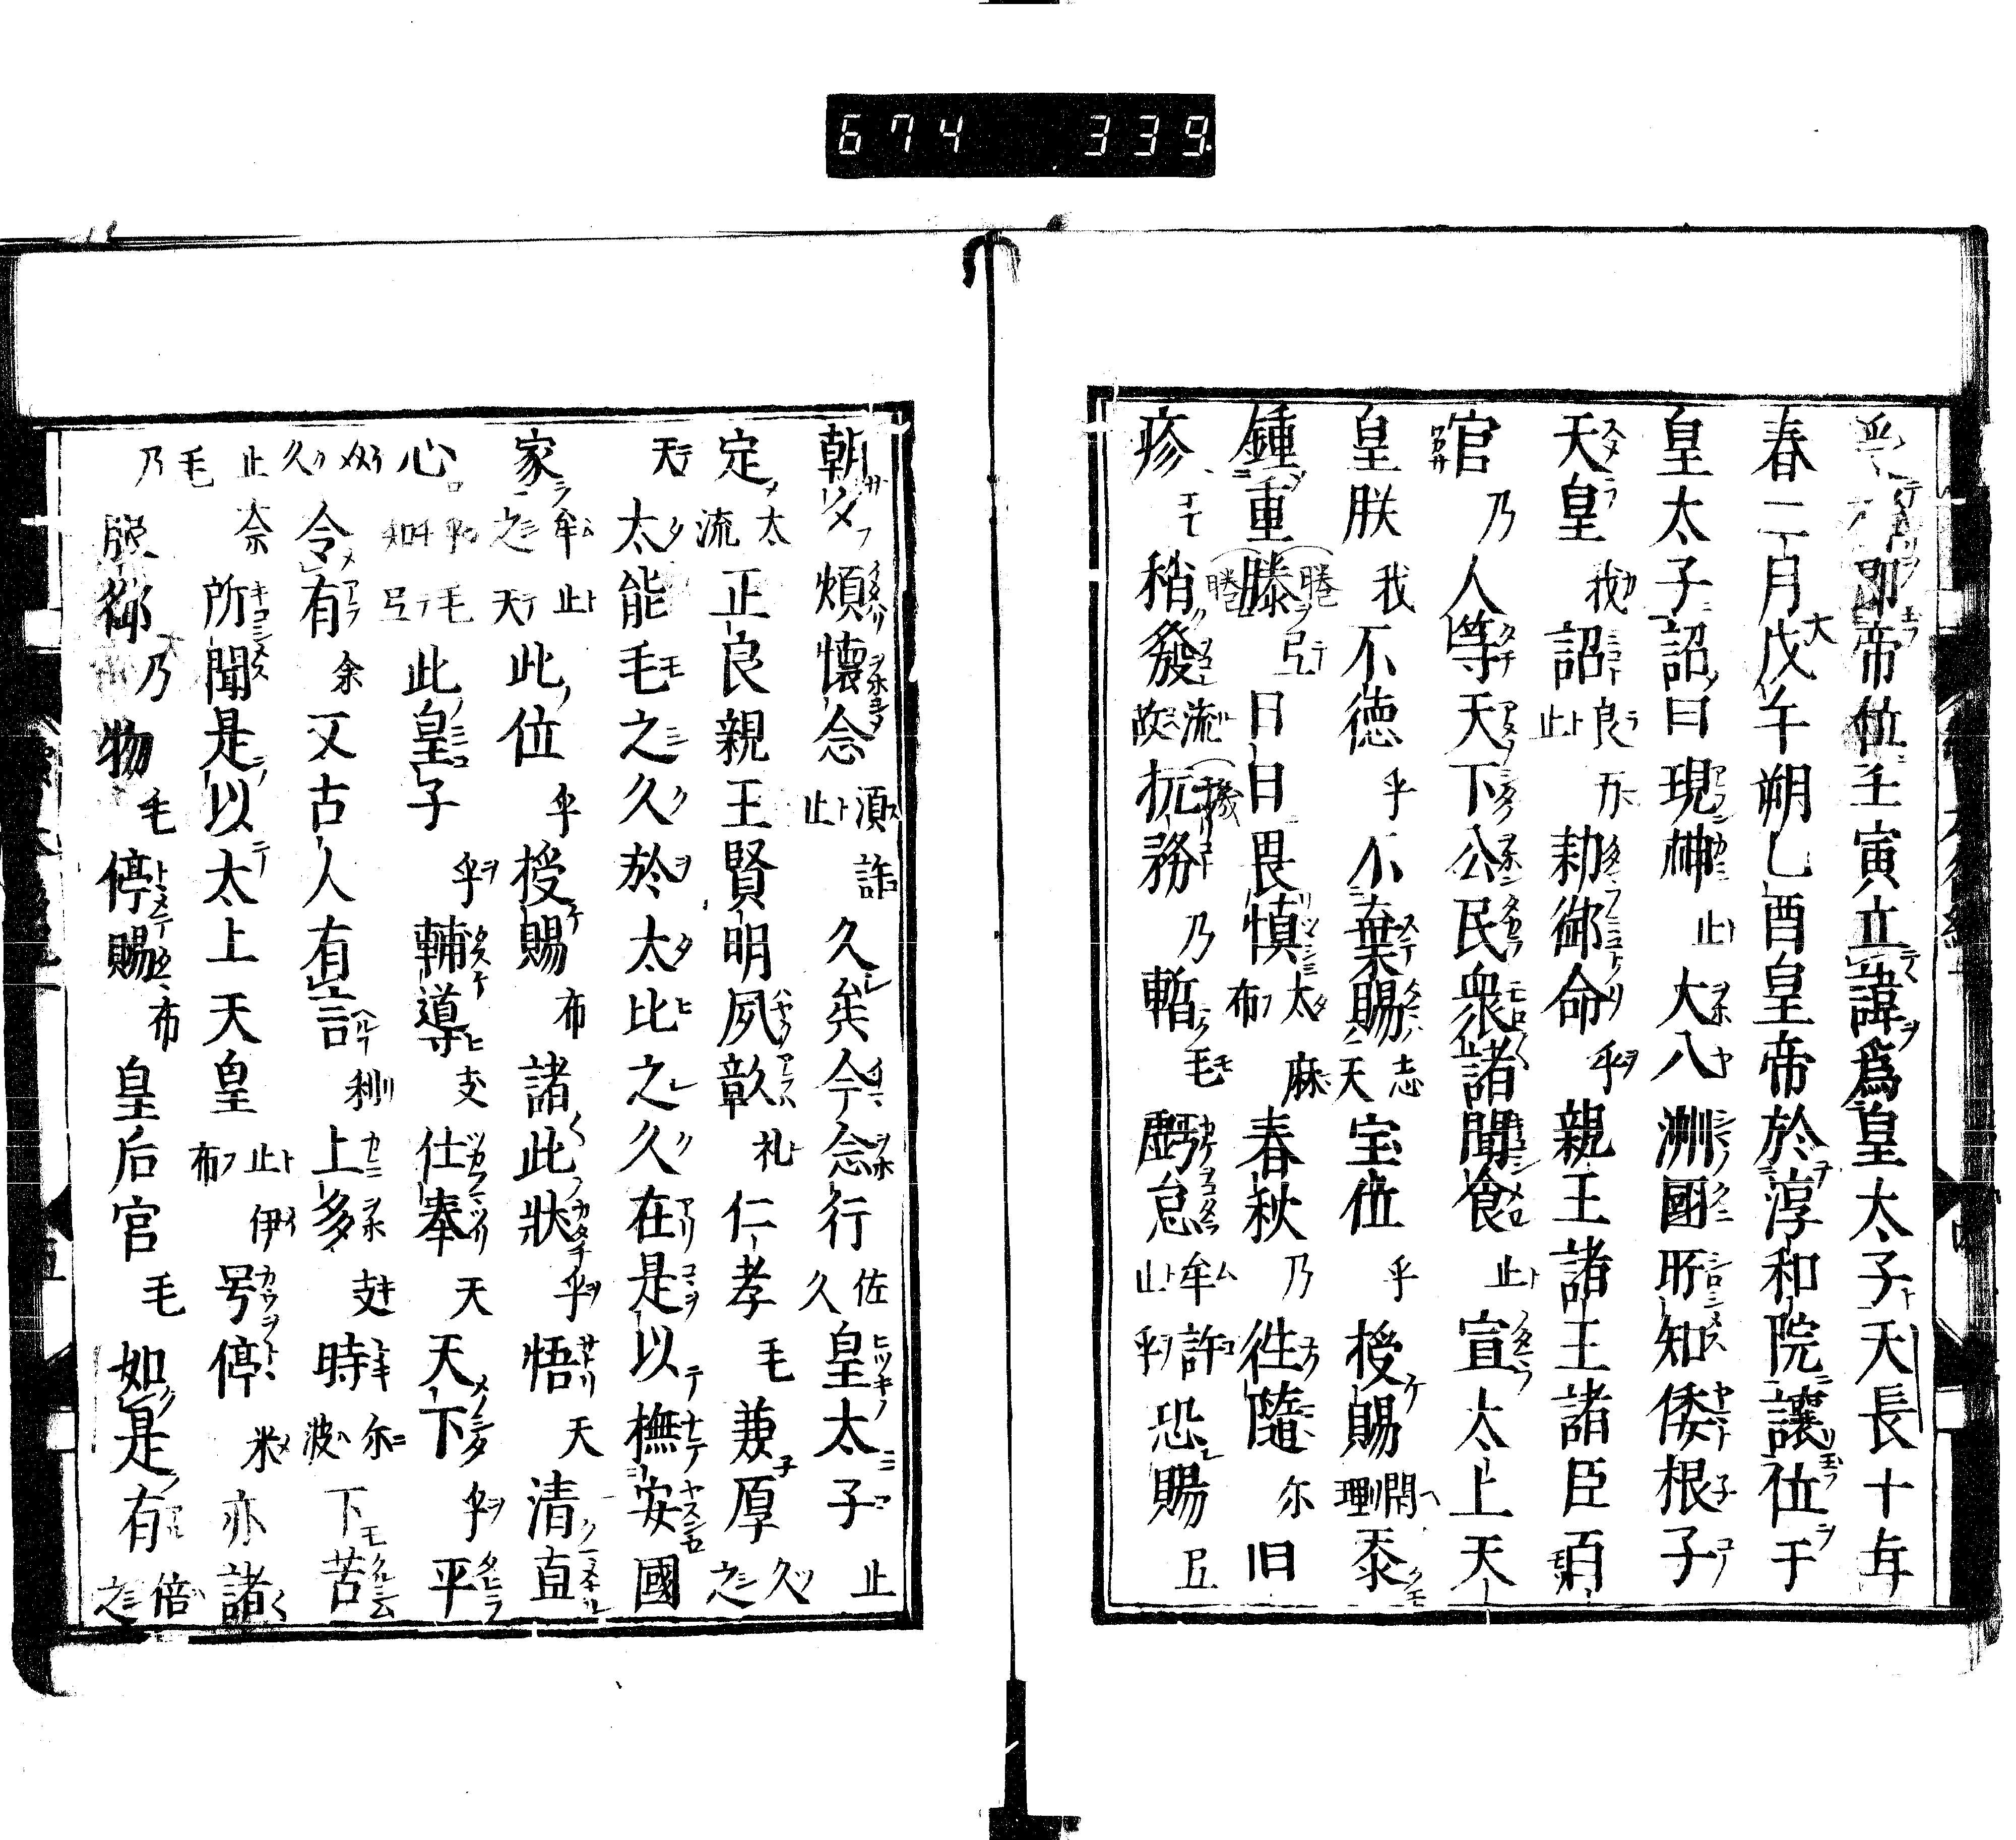 674 339
即帝位壬寅立諱爲皇太子天長十年
春二月戊午朔乙酉皇帝於淳和院讓位于
皇太子詔曰現神止大八洲國所知倭根子
天皇我詔良止万勅御命乎親王諸王諸臣百
官乃人等天下公民衆諸聞食止宣太上天
皇朕我不德乎不棄賜志天宝位乎授賜閇理忝
鍾重滕弖日日畏慎太布麻春秋乃徃隨尓旧
疹稍發流故抗務乃暫毛虧怠牟止許乎恐賜
朝夕煩懷念湏久矣今念行佐久皇太子止
定太流正良親王賢明夙彰礼仁孝毛兼厚久之
天太能毛之久於太比之久在是以撫安國
家牟止之天此位乎授賜布諸此狀乎悟天清直
心乎毛知弖此皇子乎輔導支仕奉天天下乎平
久令有余又古人有言利上多支時尓波下苦
止奈毛所聞是以太上天皇止布伊号停米亦諸
乃服御乃物毛停賜布皇后宮毛如是有倍之